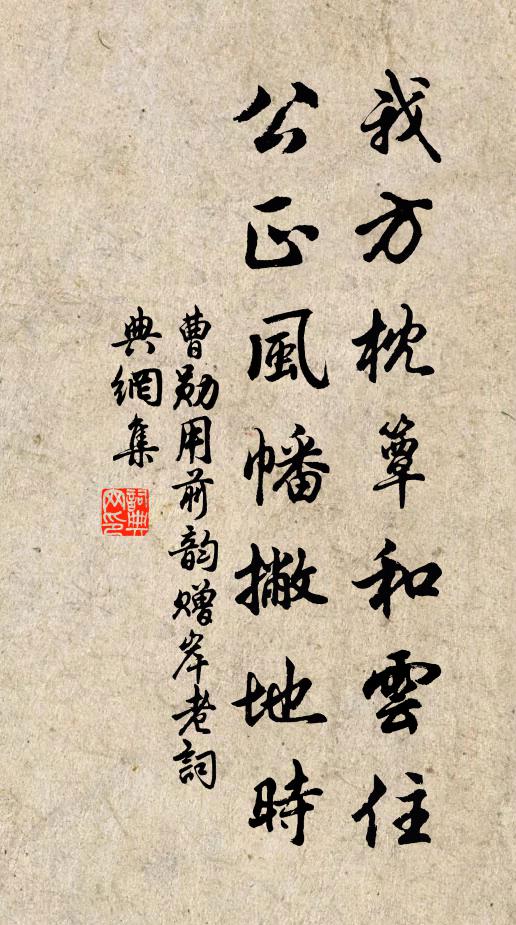 我方枕簟和雲住
公正風幡撇地時
曹勛用前韵贈岸老詞
典網集
詞典
网印